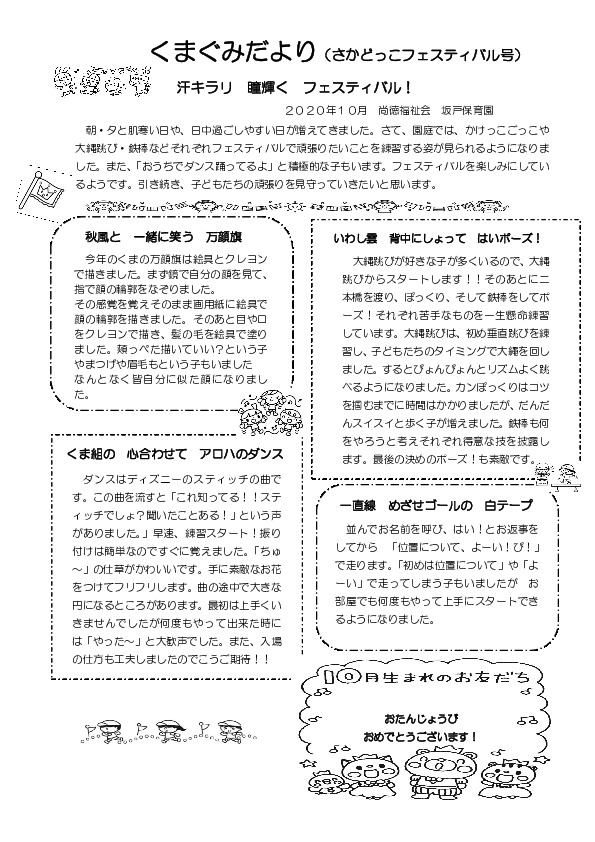 くまぐみだより（さかどっこフェスティバル号）
汗キラリ　瞳輝く　フェスティバル！
２０２０年１０月　尚徳福祉会　坂戸保育園
朝・夕と肌寒い日や、日中過ごしやすい日が増えてきました。さて、園庭では、かけっこごっこや
大縄跳び・鉄棒などそれぞれフェスティバルで頑張りたいことを練習する姿が見られるようになりま
した。また、「おうちでダンス踊ってるよ」と積極的な子もいます。フェスティバルを楽しみにしてい
るようです。引き続き、子どもたちの頑張りを見守っていきたいと思います。
秋風と　一緒に笑う　万顔旗
今年のくまの万顔旗は絵具とクレヨン
で描きました。まず鏡で自分の顔を見て、
指で顔の輪郭をなぞりました。
その感覚を覚えそのまま画用紙に絵具で
顔の輪郭を描きました。そのあと目や口
をクレヨンで描き、髪の毛を絵具で塗り
ました。頬っぺた描いていい？という子
やまつげや眉毛もという子もいました
なんとなく皆自分に似た顔になりまし
た。
いわし雲　背中にしょって　はいポーズ！
大縄跳びが好きな子が多くいるので、大縄
跳びからスタートします！！そのあとに二
本橋を渡り、ぽっくり、そして鉄棒をしてポ
ーズ！それぞれ苦手なものを一生懸命練習
しています。大縄跳びは、初め垂直跳びを練
習し、子どもたちのタイミングで大縄を回し
ました。するとぴょんぴょんとリズムよく跳
べるようになりました。カンぽっくりはコツ
を掴むまでに時間はかかりましたが、だんだ
んスイスイと歩く子が増えました。鉄棒も何
をやろうと考えそれぞれ得意な技を披露し
ます。最後の決めのポーズ！も素敵です。
くま組の　心合わせて　アロハのダンス
ダンスはディズニーのスティッチの曲で
す。この曲を流すと「これ知ってる！！ステ
ィッチでしょ？聞いたことある！」という声
がありました。」早速、練習スタート！振り
付けは簡単なのですぐに覚えました。「ちゅ
～」の仕草がかわいいです。手に素敵なお花
をつけてフリフリします。曲の途中で大きな
円になるところがあります。最初は上手くい
きませんでしたが何度もやって出来た時に
は「やった～」と大歓声でした。また、入場
の仕方も工夫しましたのでこうご期待！！
一直線　めざせゴールの　白テープ
並んでお名前を呼び、はい！とお返事を
してから　「位置について、よーい！ぴ！」
で走ります。「初めは位置について」や「よ
ーい」で走ってしまう子もいましたが　お
部屋でも何度もやって上手にスタートでき
るようになりました。
１０月生まれのお友だち
おたんじょうび
おめでとうございます！